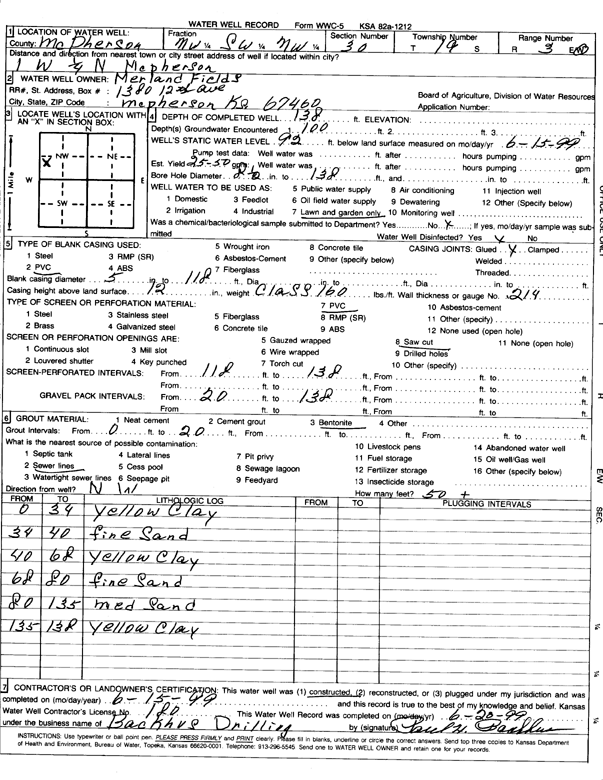 WATER WELL RECORD Form WWC-5 KSA 82a-1212
1 LOCATION OF WATER WELL: Fraction Section Number Township Number Range Number
County: McPherson NW ¼ SW ¼ NW ¼ 30 T 19 S R 3 E/W
Distance and direction from nearest town or city street address of well if located within city?
1 W 4 N Mcpherson
2 WATER WELL OWNER: Merland Fields
RR#, St. Address, Box # : 1380 12th Ave Board of Agriculture, Division of Water Resources
City, State, ZIP Code : mcpherson KS 67460 Application Number:
3 LOCATE WELL'S LOCATION WITH AN "X" IN SECTION BOX:
N
NW NE
W E
SW SE
S
1 Mile
X
4 DEPTH OF COMPLETED WELL 138 ft. ELEVATION:
Depth(s) Groundwater Encountered 1. 100 ft. 2. ft. 3. ft.
WELL'S STATIC WATER LEVEL 92 ft. below land surface measured on mo/day/yr 6-15-99
Pump test data: Well water was ft. after hours pumping gpm
Est. Yield 25-50 gpm: Well water was ft. after hours pumping gpm
Bore Hole Diameter 8½ in. to 138 ft., and in. to ft.
WELL WATER TO BE USED AS: 5 Public water supply 8 Air conditioning 11 Injection well
1 Domestic 3 Feedlot 6 Oil field water supply 9 Dewatering 12 Other (Specify below)
2 Irrigation 4 Industrial 7 Lawn and garden only 10 Monitoring well
Was a chemical/bacteriological sample submitted to Department? Yes No X; If yes, mo/day/yr sample was submitted
Water Well Disinfected? Yes X No
5 TYPE OF BLANK CASING USED: 5 Wrought iron 8 Concrete tile CASING JOINTS: Glued X Clamped
1 Steel 3 RMP (SR) 6 Asbestos-Cement 9 Other (specify below) Welded
2 PVC 4 ABS 7 Fiberglass Threaded
Blank casing diameter 5 in. to 118 ft., Dia in. to ft., Dia in. to ft.
Casing height above land surface 12 in., weight Class 160 lbs./ft. Wall thickness or gauge No. .214
TYPE OF SCREEN OR PERFORATION MATERIAL: 7 PVC 10 Asbestos-cement
1 Steel 3 Stainless steel 5 Fiberglass 8 RMP (SR) 11 Other (specify)
2 Brass 4 Galvanized steel 6 Concrete tile 9 ABS 12 None used (open hole)
SCREEN OR PERFORATION OPENINGS ARE: 5 Gauzed wrapped 8 Saw cut 11 None (open hole)
1 Continuous slot 3 Mill slot 6 Wire wrapped 9 Drilled holes
2 Louvered shutter 4 Key punched 7 Torch cut 10 Other (specify)
SCREEN-PERFORATED INTERVALS: From 118 ft. to 138 ft., From ft. to ft.
From ft. to ft., From ft. to ft.
GRAVEL PACK INTERVALS: From 20 ft. to 138 ft., From ft. to ft.
From ft. to ft., From ft. to ft.
6 GROUT MATERIAL: 1 Neat cement 2 Cement grout 3 Bentonite 4 Other
Grout Intervals: From 0 ft. to 20 ft., From ft. to ft., From ft. to ft.
What is the nearest source of possible contamination: 10 Livestock pens 14 Abandoned water well
1 Septic tank 4 Lateral lines 7 Pit privy 11 Fuel storage 15 Oil well/Gas well
2 Sewer lines 5 Cess pool 8 Sewage lagoon 12 Fertilizer storage 16 Other (specify below)
3 Watertight sewer lines 6 Seepage pit 9 Feedyard 13 Insecticide storage
Direction from well? N W How many feet? 50 +
FROM TO LITHOLOGIC LOG FROM TO PLUGGING INTERVALS
0 34 Yellow Clay
34 40 fine Sand
40 68 Yellow Clay
68 80 fine Sand
80 135 med Sand
135 138 Yellow Clay
7 CONTRACTOR'S OR LANDOWNER'S CERTIFICATION: This water well was (1) constructed, (2) reconstructed, or (3) plugged under my jurisdiction and was
completed on (mo/day/year) 6-15-99 and this record is true to the best of my knowledge and belief. Kansas
Water Well Contractor's License No. 180 This Water Well Record was completed on (mo/day/yr) 6-20-99
under the business name of Backhus Drilling by (signature)
INSTRUCTIONS: Use typewriter or ball point pen. PLEASE PRESS FIRMLY and PRINT clearly. Please fill in blanks, underline or circle the correct answers. Send top three copies to Kansas Department
of Health and Environment, Bureau of Water, Topeka, Kansas 66620-0001. Telephone: 913-296-5545. Send one to WATER WELL OWNER and retain one for your records.
E/W
SEC.
¼
¼
¼